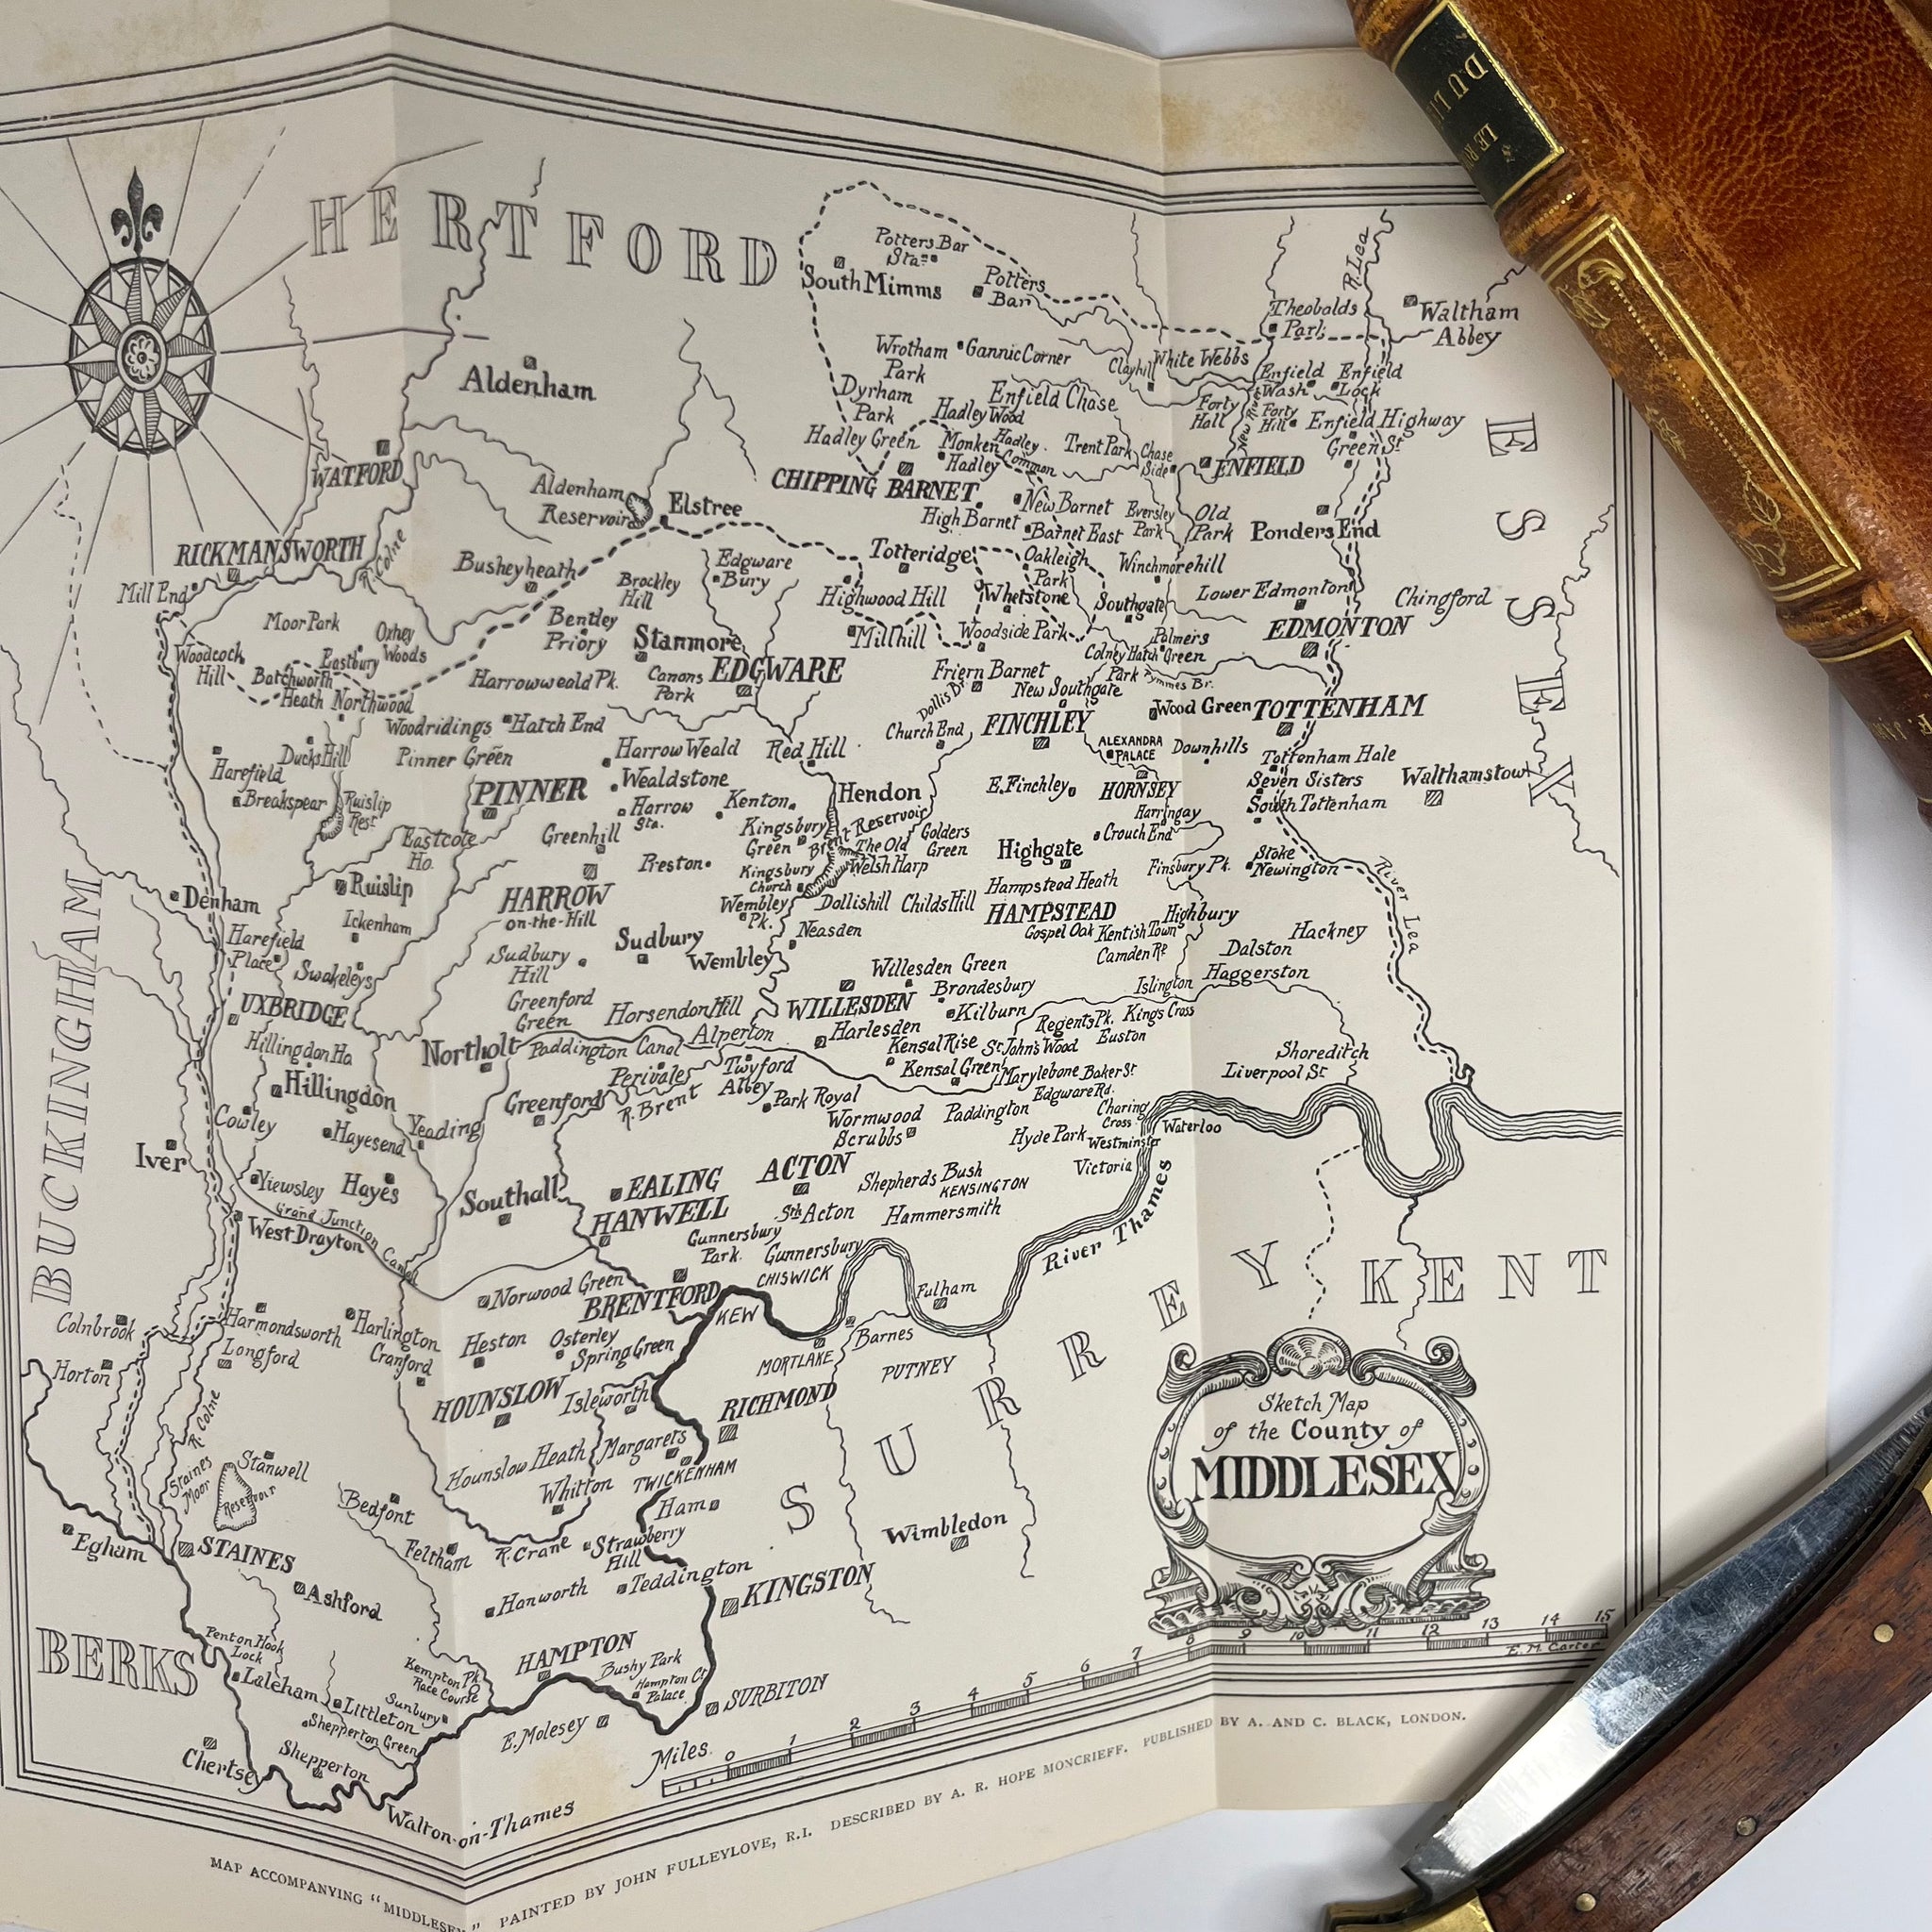 HERTFORD
Potters Bar
Sta.
South Mimms
Potters
Bar
R. Lea
Theobalds
Park
Waltham
Abbey
Aldenham
Wrotham
Park
Gannic Corner
Clayhill
White Webbs
Enfield
Wash
Enfield
Lock
Dyrham
Park
Hadley Wood
Enfield Chase
Forty
Hall
New River
Forty
Hill
Enfield Highway
Green St.
Hadley Green
Monken
Hadley
Hadley
Common
Trent Park
Chase
Side
ENFIELD
WATFORD
Aldenham
Reservoir
Elstree
CHIPPING BARNET
New Barnet
High Barnet
Barnet East
Eversley
Park
Old
Park
Ponders End
RICKMANSWORTH
R. Colne
Mill End
Busheyheath
Edgware
Bury
Brockley
Hill
Totteridge
Oakleigh
Park
Winchmorehill
Highwood Hill
Whetstone
Southgate
Lower Edmonton
Chingford
Moor Park
Oxhey
Woods
Bentley
Priory
Stanmore
Millhill
Woodside Park
Palmers
Green
Colney Hatch
EDMONTON
Woodcock
Hill
Eastbury
Batchworth
Heath
Northwood
Harrowweald Pk.
Canons
Park
EDGWARE
Friern Barnet
Park
Pymmes Br.
New Southgate
Dollis Br.
Woodridings
Hatch End
Church End
FINCHLEY
Wood Green
TOTTENHAM
Ducks Hill
Pinner Green
Harrow Weald
Red Hill
ALEXANDRA
PALACE
Downhills
Tottenham Hale
Harefield
Breakspear
Ruislip
Resr.
PINNER
Wealdstone
Harrow
Sta.
Kenton
Hendon
E. Finchley
HORNSEY
Seven Sisters
South Tottenham
Walthamstow
ESSEX
Eastcote
Ho.
Greenhill
Kingsbury
Green
Brent Reservoir
Golders
Green
Harringay
Crouch End
Highgate
Preston
Kingsbury
Church
The Old
Welsh Harp
Finsbury Pk.
Stoke
Newington
River Lea
Denham
Ruislip
HARROW
on-the-Hill
Wembley
Pk.
Dollishill
Childs Hill
Hampstead Heath
HAMPSTEAD
Highbury
Ickenham
Gospel Oak
Kentish Town
Hackney
Harefield
Place
Swakeleys
Sudbury
Hill
Sudbury
Wembley
Neasden
Camden Rd.
Dalston
Willesden Green
Haggerston
BUCKINGHAM
UXBRIDGE
Greenford
Green
Horsendon Hill
WILLESDEN
Brondesbury
Islington
Kilburn
Regents Pk.
Kings Cross
Hillingdon Ho
Northolt
Paddington Canal
Alperton
Harlesden
Kensal Rise
St. John's Wood
Euston
Shoreditch
Hillingdon
Perivale
Twyford
Abbey
Kensal Green
Marylebone
Baker St
Liverpool St
Greenford
R. Brent
Park Royal
Edgware Rd.
Cowley
Hayesend
Yeading
Wormwood
Scrubbs
Paddington
Charing
Cross
Waterloo
Iver
Hyde Park
Westminster
Victoria
Yiewsley
Hayes
Southall
EALING
ACTON
Shepherds Bush
KENSINGTON
Grand Junction Canal
West Drayton
HANWELL
Sth. Acton
Hammersmith
River Thames
Gunnersbury
Park.
Gunnersbury
CHISWICK
Norwood Green
BRENTFORD
KEW
Fulham
KENT
Colnbrook
Harmondsworth
Harlington
Heston
Osterley
Spring Green
Barnes
Longford
Cranford
MORTLAKE
PUTNEY
SURREY
Horton
HOUNSLOW
Isleworth
RICHMOND
R. Colne
Hounslow Heath
Margarets
Staines
Moor
Reservoir
Stanwell
Whitton
TWICKENHAM
Bedfont
Ham
Egham
STAINES
Feltham
R. Crane
Strawberry
Hill
Wimbledon
Ashford
Hanworth
Teddington
KINGSTON
BERKS
Penton Hook
Lock
HAMPTON
Bushy Park
Laleham
Kempton Pk
Race Course
Hampton Ct
Palace
SURBITON
Littleton
Sunbury
Shepperton Green
E. Molesey
Chertsey
Shepperton
Walton-on-Thames
Sketch Map
of the County of
MIDDLESEX
Miles. 0 1 2 3 4 5 6 7 8 9 10 11 12 13 14 15
E. M. Carter
MAP ACCOMPANYING "MIDDLESEX" PAINTED BY JOHN FULLEYLOVE, R.I. DESCRIBED BY A. R. HOPE MONCRIEFF. PUBLISHED BY A. AND C. BLACK, LONDON.